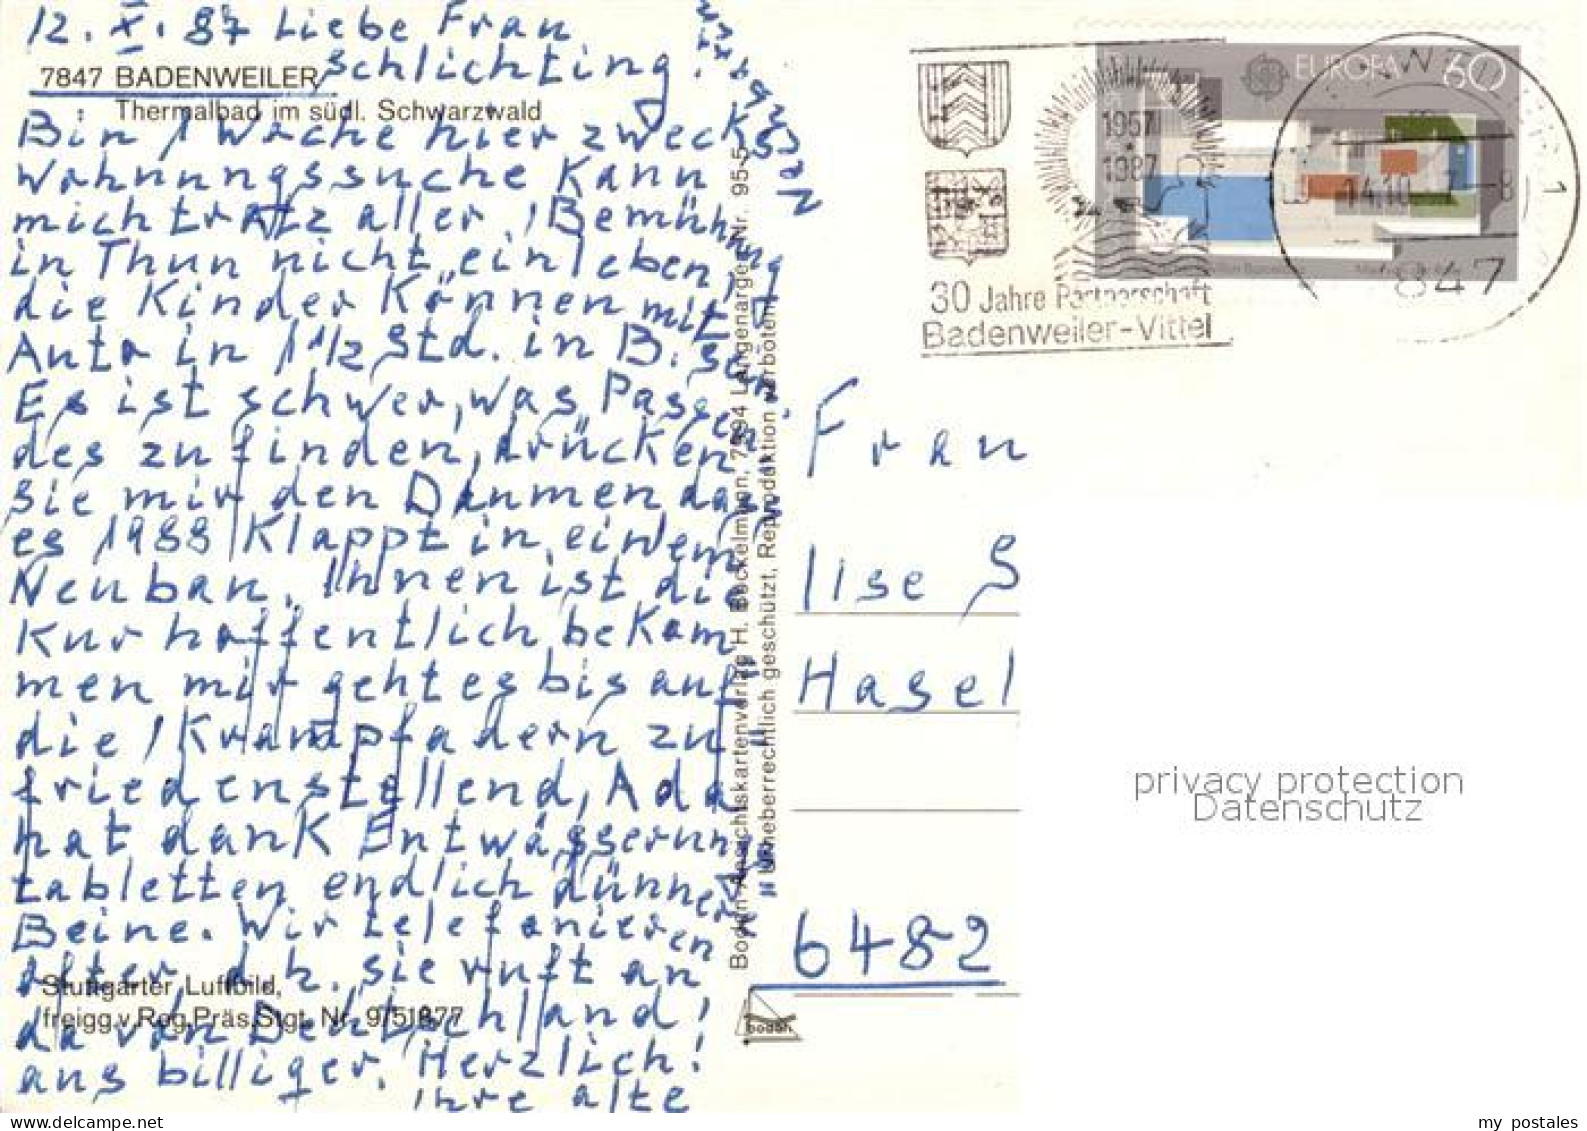 12. X. 87 Liebe Frau
Schlichting!
7847 BADENWEILER
Thermalbad im südl. Schwarzwald
Bin 1 Woche hier zwecks
Wohnungssuche Kann
mich trotz aller Bemühung
in Thun nicht einleben,
die Kinder Können mit
Auto in 1 1/2 Std. in B. sein
Es ist schwer, was Passen
des zu finden, drücken
Sie mir den Daumen das
es 1988 Klappt in einem
Neubau. Ihnen ist die
Kur hoffentlich bekom
men mir geht es bis auf
die Krampfadern zu
friedenstellend, Ada
hat dank Entwässerung
tabletten endlich dünnere
Beine. Wir telefonieren
öfter d.h. sie ruft an
da von Deutschland
aus billiger. Herzlich!
Ihre alte
Stuttgarter Luftbild,
freigg.v.Reg.Präs.Stgt. Nr. 9/51877
Boden-Ansichtskartenverlag H. Bockelmann, 7994 Langenargen Nr. 95-5
Urheberrechtlich geschützt, Reproduktion verboten
bodan
EUROPA 60
1957
1987
30 Jahre Partnerschaft
Badenweiler-Vittel
14.10.
847
1
Frau
Ilse S
Hasel
6482
privacy protection
Datenschutz
my postales